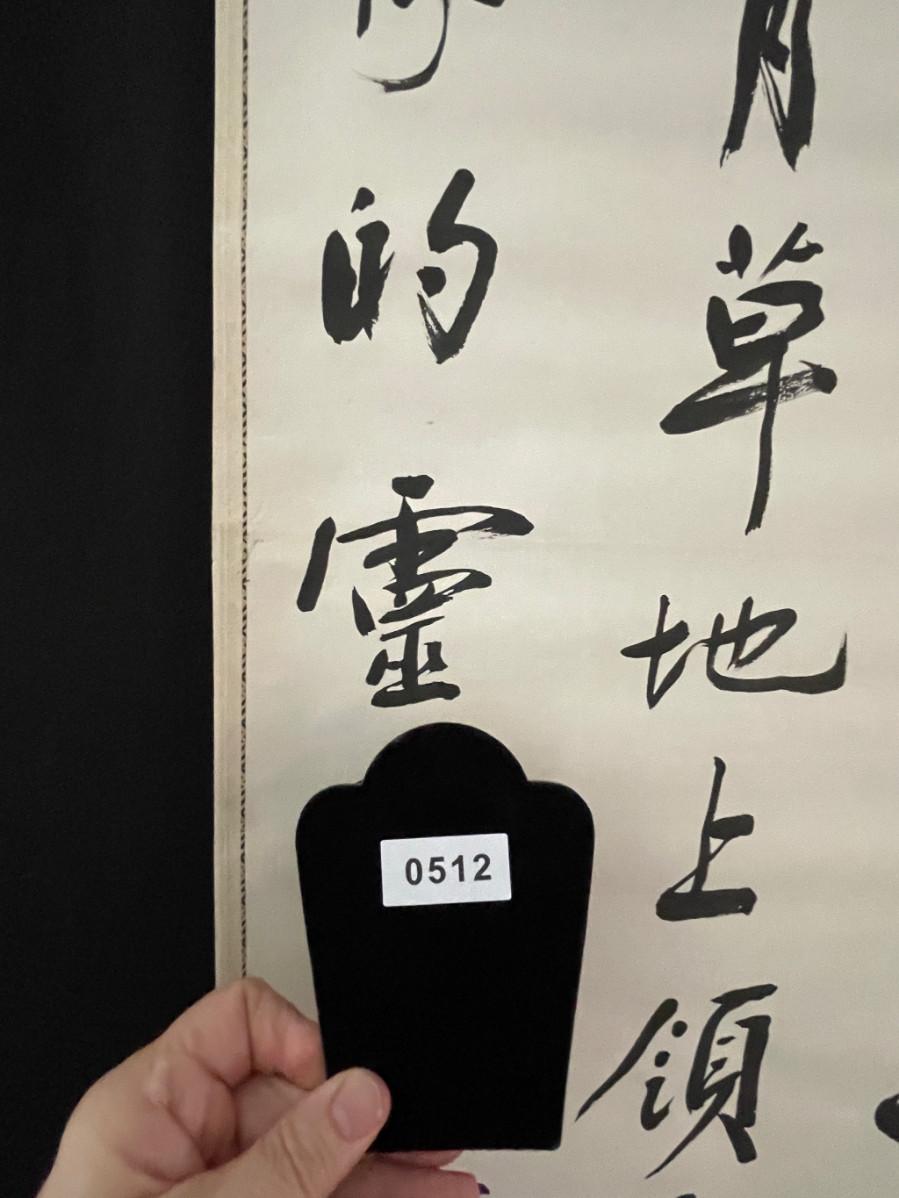 草地上領
的靈
0512